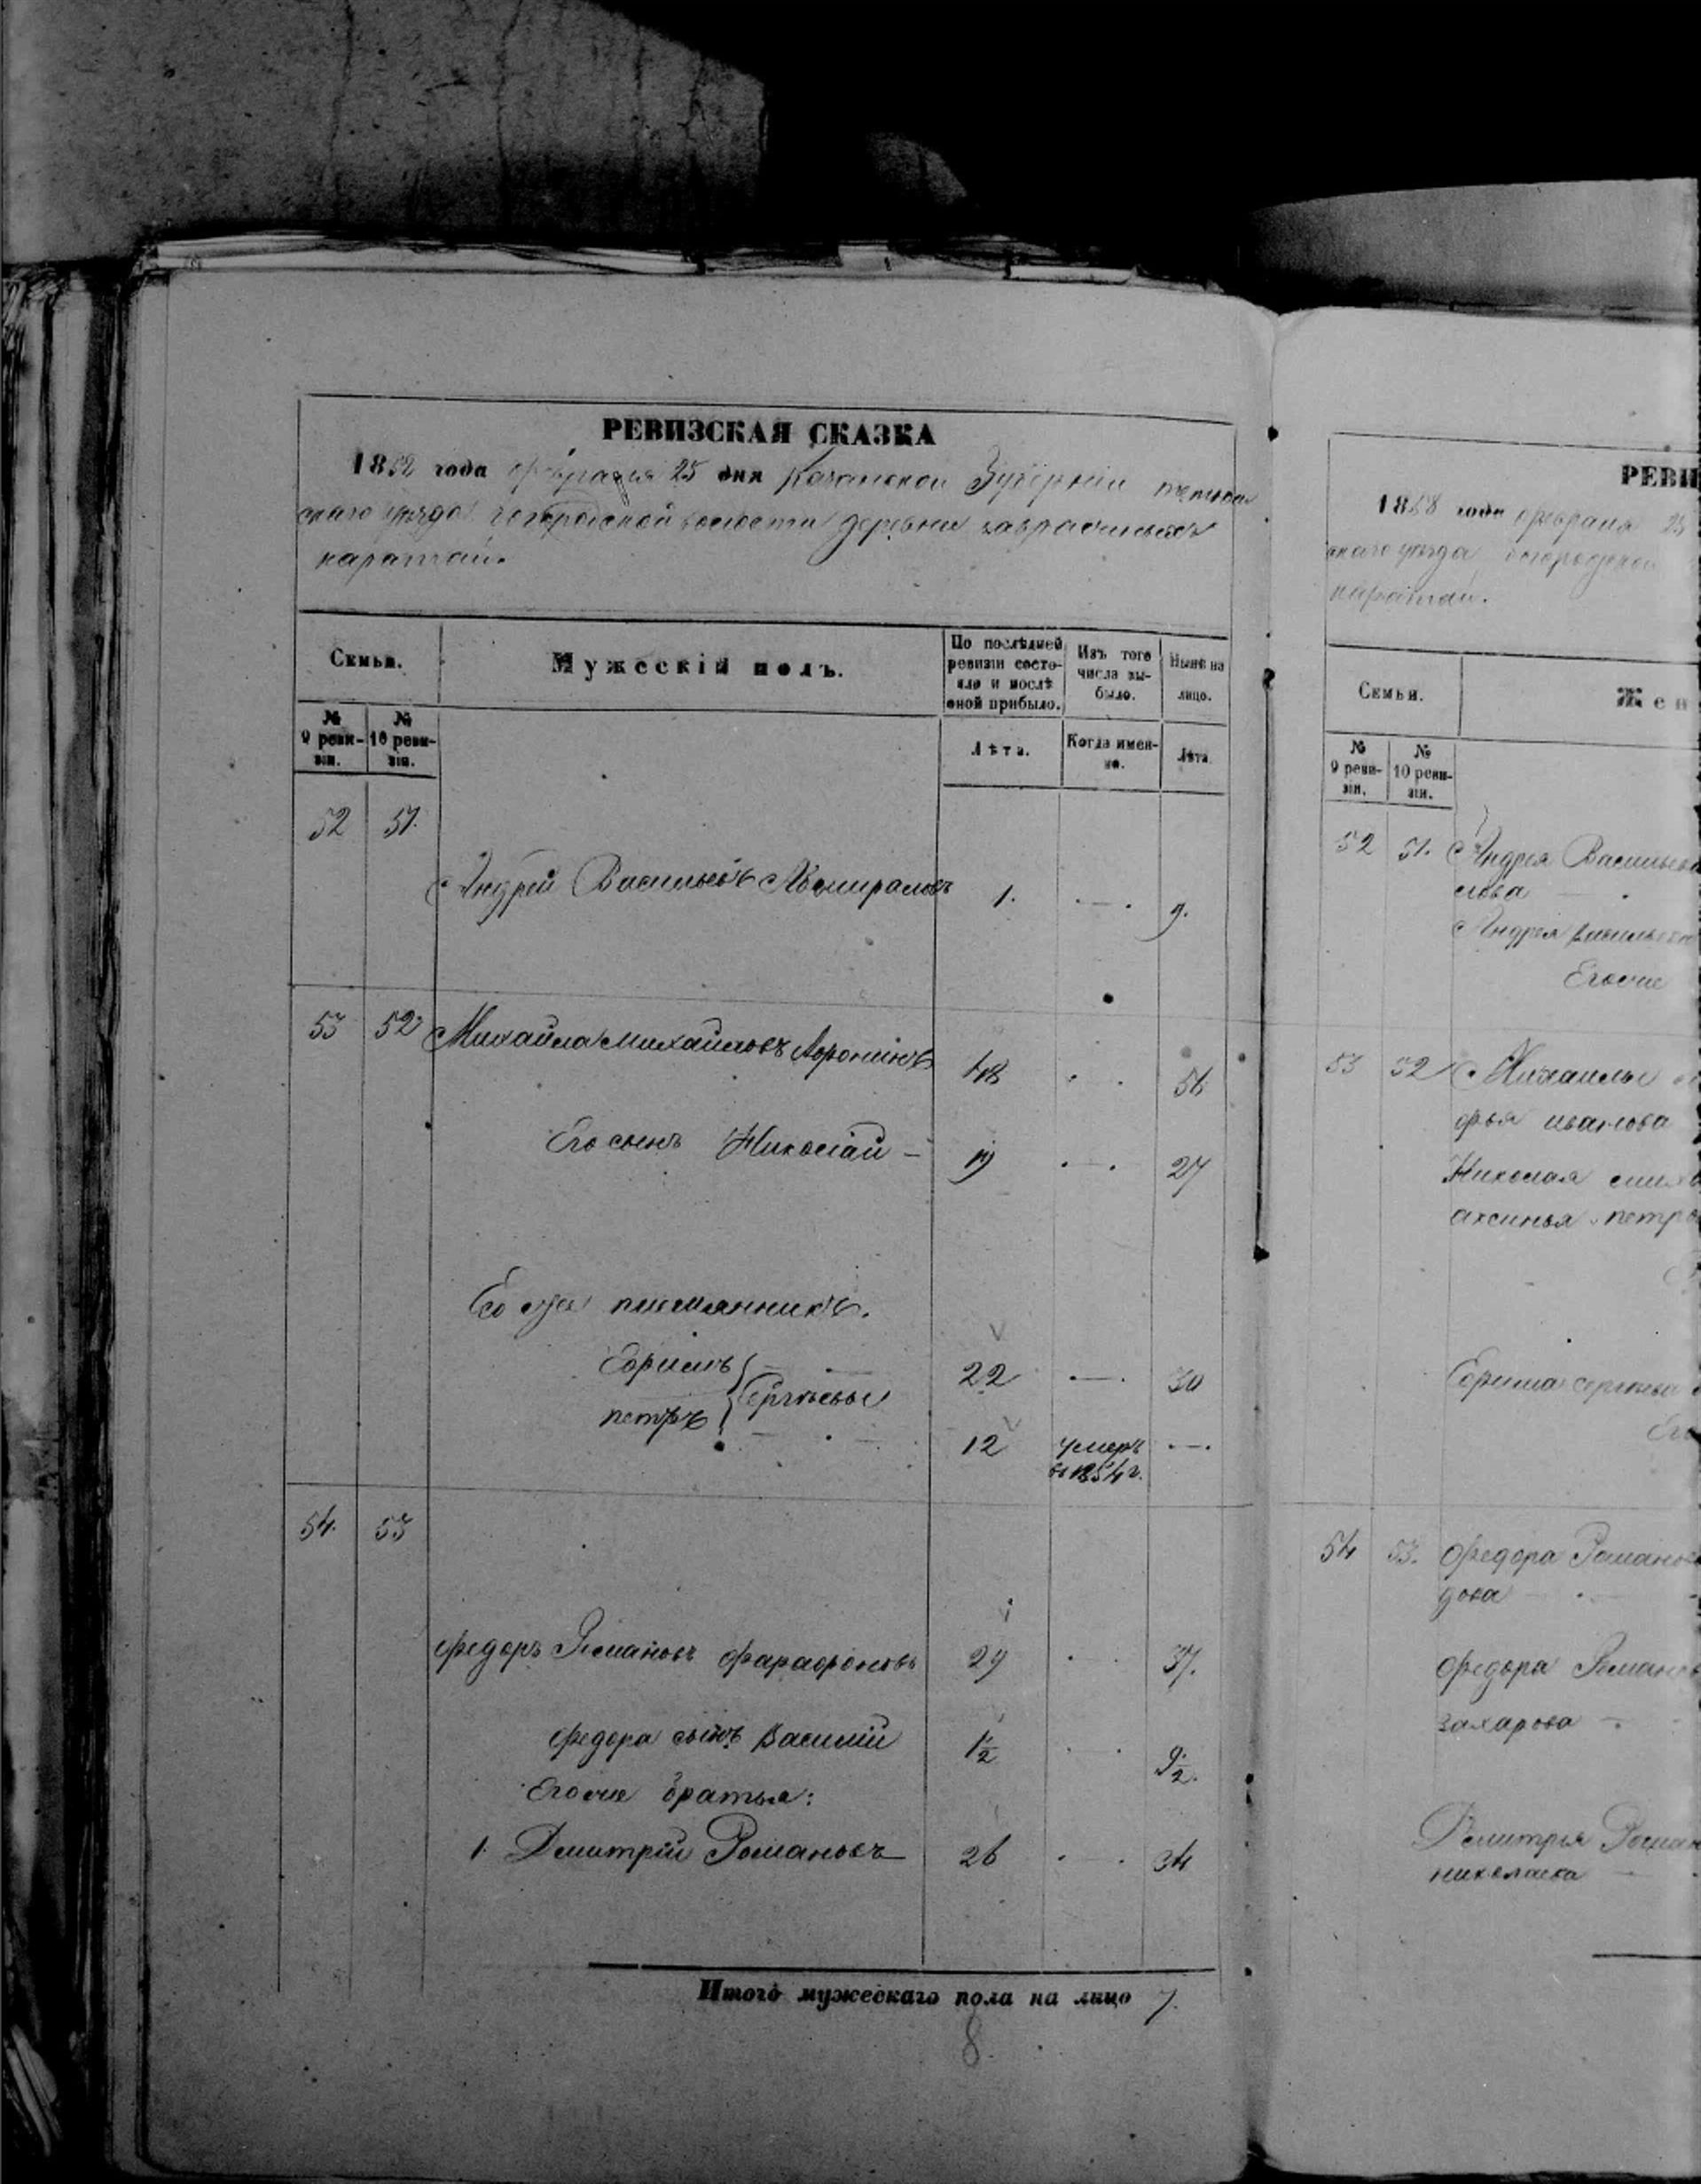 РЕВИЗСКАЯ СКАЗКА
1858 года февраля 25 дня Казанской Губерніи
скаго уѣзда богородской волости деревни
каратаи.
Семьи.
Мужескій полъ.
По послѣдней ревизіи состояло и послѣ оной прибыло.
Изъ того числа выбыло.
Нынѣ на лицо.
№ 9 ревизіи.
№ 10 ревизіи.
Лѣта.
Когда именно.
Лѣта.
52 51.
Андрей Васильевъ 1. 9.
53 52 Михайла Михайловъ 48 56
Его сынъ Николай 19 27
Его же племянники.
Ефимъ Сергѣевы 22 30
петръ 12 умеръ въ 1854 г.
54. 53
Федоръ Романовъ Фарафоновъ 29 37.
Федора сынъ Василій 1 1/2 9 1/2.
Его же братья:
1. Дмитрій Романовъ 26 34
Итого мужескаго пола на лицо 7.
8.
РЕВИ
1858 года февраля 25
скаго уѣзда богородской
каратаи.
Семьи.
Жен
№ 9 ревизіи.
№ 10 ревизіи.
52 51. Андрея
Андрея
Его же
53 52 Михайлы
иванова
Николая
аксинья петро
Ефима сергѣева
54 53. Федора
Федора
захарова
Дмитрія
николаева